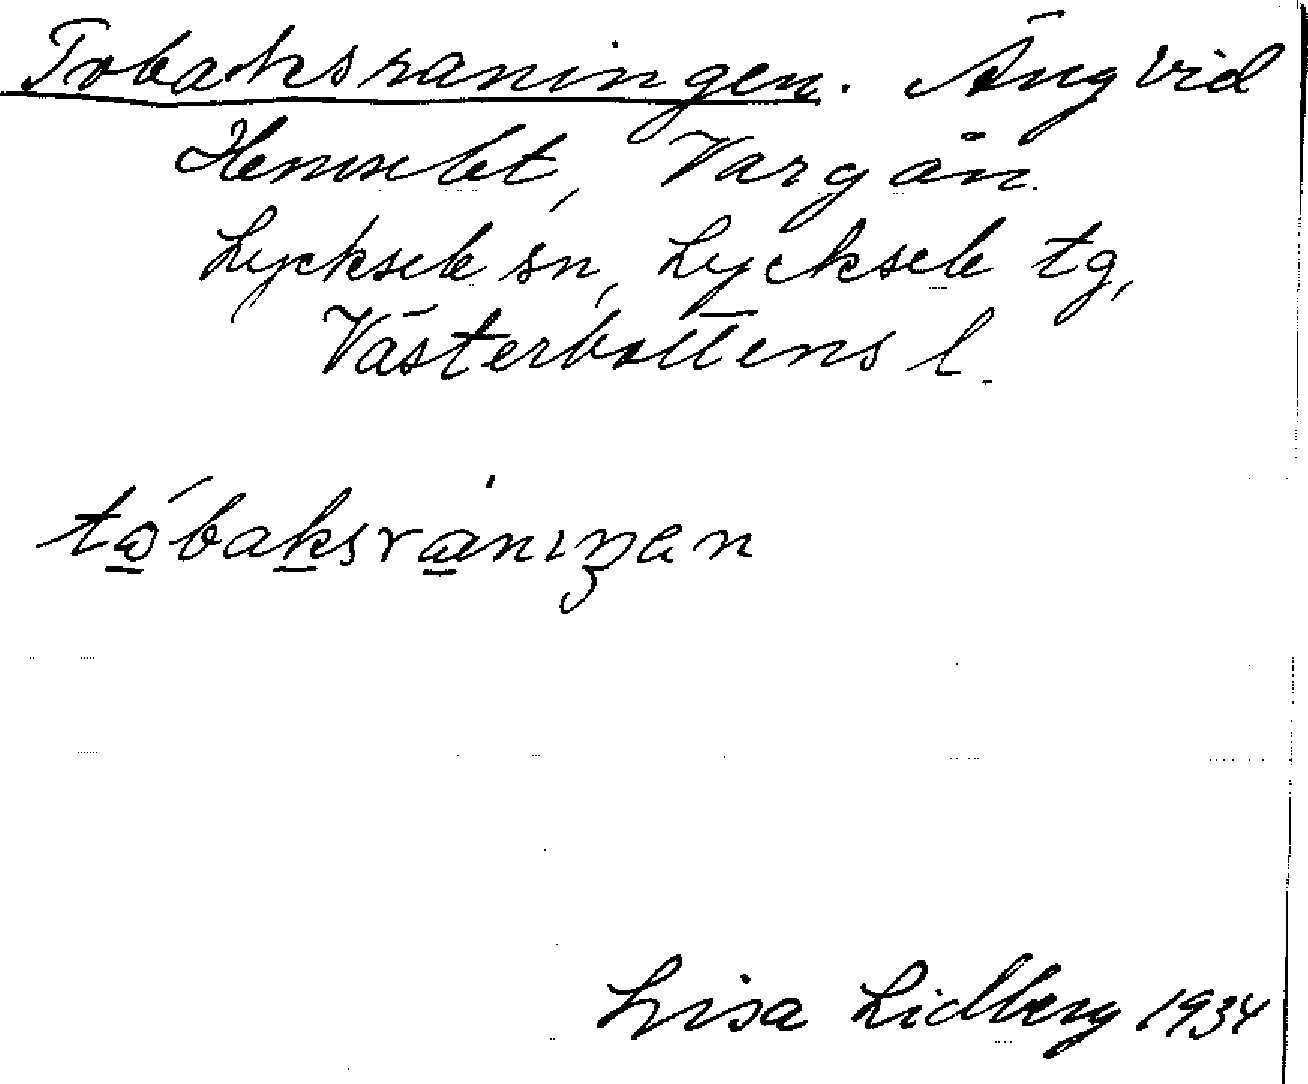 Tobaksraningen. Äng vid
Hemselet, Vargån.
Lycksele sn, Lycksele tg,
Västerbottens l.
tòbaksranıŋen
Lisa Lidberg 1934